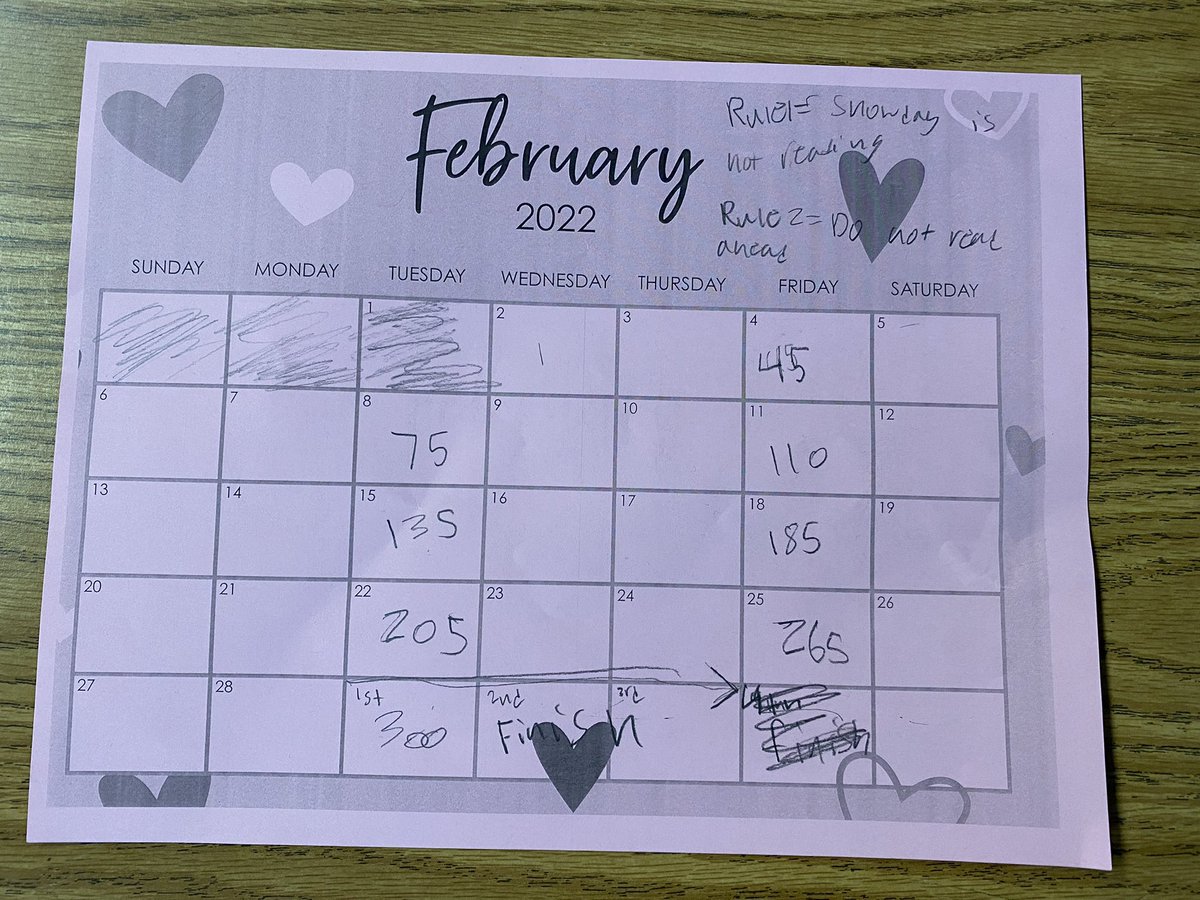 February
2022
Rule1= Snowday is
not reading
Rule 2= Do not read
ahead
SUNDAY MONDAY TUESDAY WEDNESDAY THURSDAY FRIDAY SATURDAY
1 2 3 4 5
1 45
6 7 8 9 10 11 12
75 110
13 14 15 16 17 18 19
135 185
20 21 22 23 24 25 26
205 265
27 28 1st 2nd 3rd
300 Finish Finish